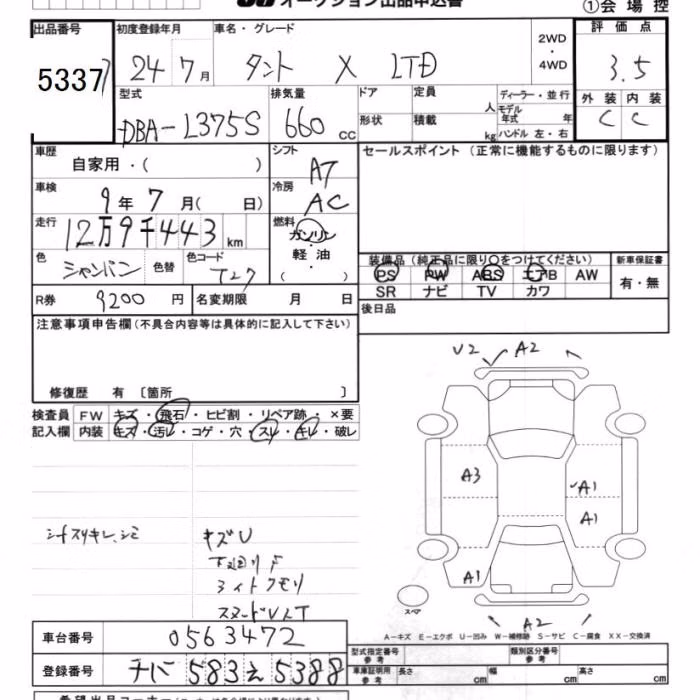 オークション出品申込書
①会場控
出品番号 5337
初度登録年月 24年 7月
車名・グレード タント X LTD
2WD・4WD
評価点 3.5
外装 C 内装 C
型式 DBA-L375S
排気量 660 cc
ドア 形状
定員 人
積載 kg
ディーラー・並行
モデル年式 年
ハンドル 左・右
車歴 自家用・( )
シフト AT
セールスポイント(正常に機能するものに限ります)
車検 9年 7月( 日)
冷房 AC
走行 12万9千443 km
燃料 ガソリン・軽油・( )
色 シャンパン 色替 色コード T27
装備品(純正品に限り○をつけてください)
PS PW ABS エアB AW
SR ナビ TV カワ
新車保証書 有・無
R券 9200 円
名変期限 月 日
後日品
注意事項申告欄(不具合内容等は具体的に記入して下さい)
修復歴 有〔箇所 〕
検査員記入欄
FW キズ・飛石・ヒビ割・リペア跡・×要
内装 キズ・汚レ・コゲ・穴・スレ・キレ・破レ
U2 A2
A3 A1
A1
A1
A2
スペア
シートスリキレ、シミ
キズU
下廻りF
ライトクモリ
A-キズ E-エクボ U-凹み W-補修跡 S-サビ C-腐食 XX-交換済
車台番号 0563472
登録番号 チバ 583 え 5388
型式指定番号 参考
類別区分番号 参考
車庫証明用 参考 長さ cm 幅 cm 高さ cm